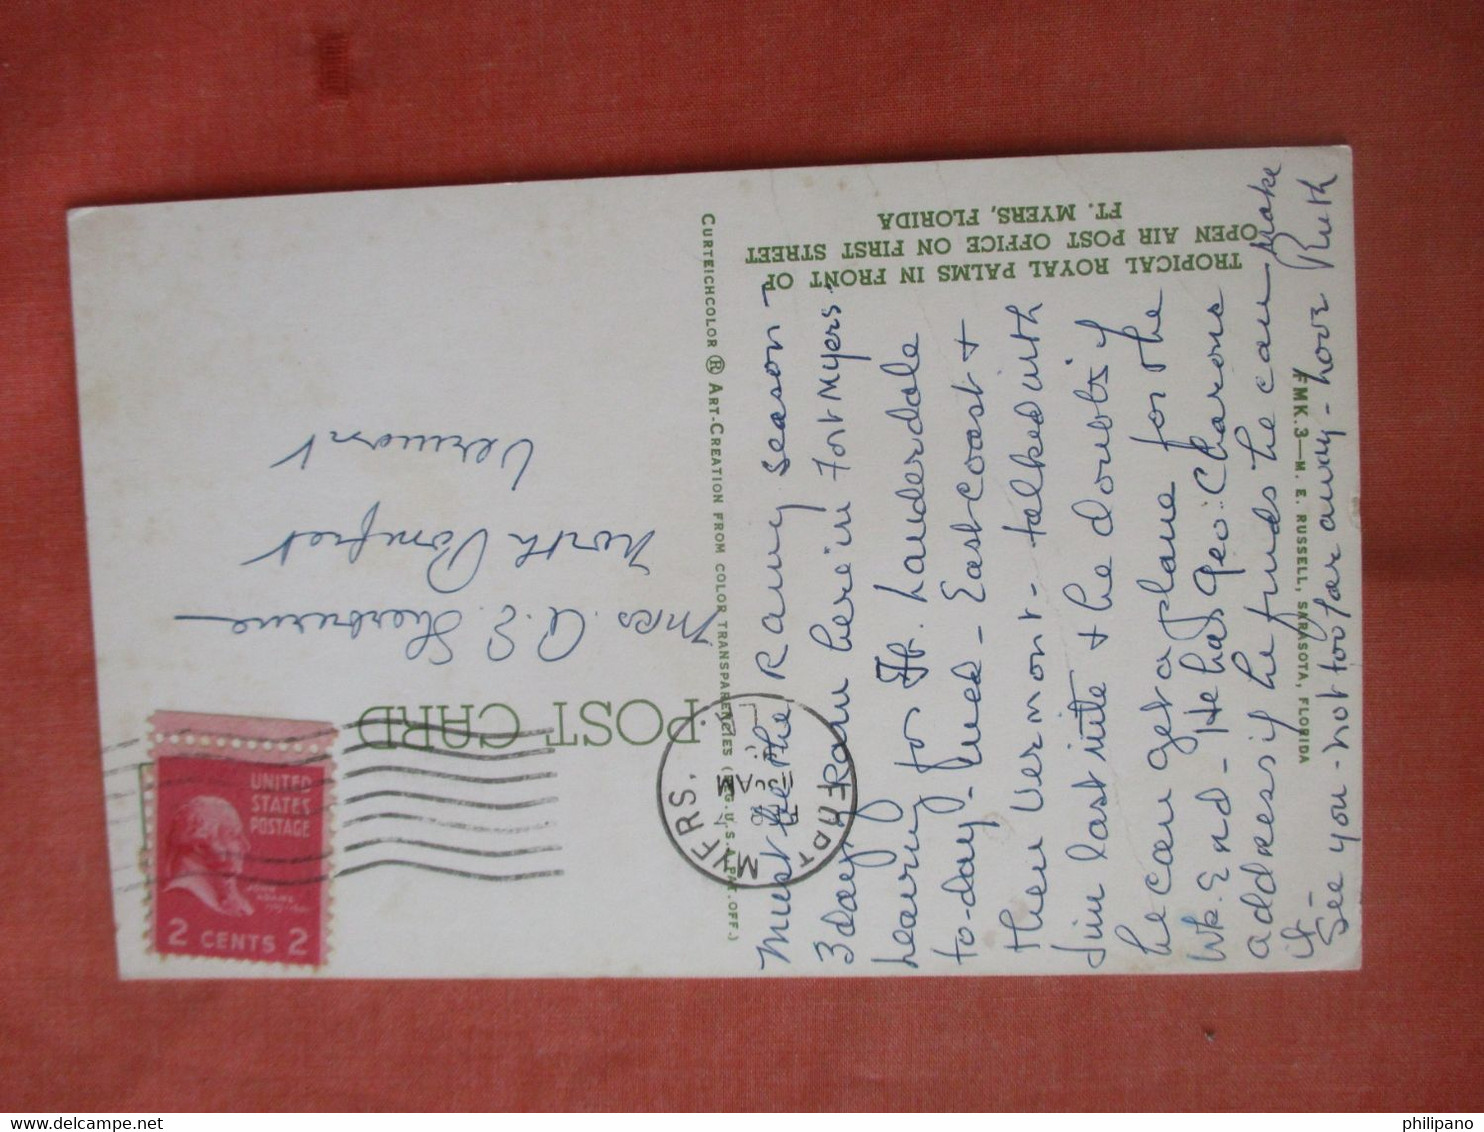 TROPICAL ROYAL PALMS IN FRONT OF
OPEN AIR POST OFFICE ON FIRST STREET
FT. MYERS, FLORIDA
Must be the Rainy season -
3 days Rain here in Fort Myers.
leaving for Ft. Lauderdale
to-day - East coast +
then Vermont - talked with
Jim last nite + he doubts if
he can get a plane for the
Wk. End - He has Geo. Charons
address if he finds he can make
it -
See you - not too far away - love Ruth
FMK.3—M. E. RUSSELL, SARASOTA, FLORIDA
CURTEICHCOLOR ® ART-CREATION FROM COLOR TRANSPARENCIES (REG. U.S.A. PAT. OFF.)
POST CARD
Mrs. A. E. Sherburne
North Pomfret
Vermont
FORT MYERS.
AM
UNITED
STATES
POSTAGE
JOHN
ADAMS
2 CENTS 2
philipano